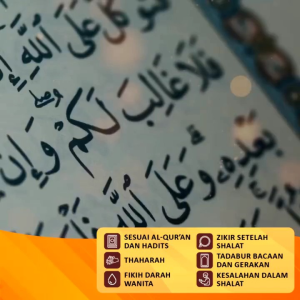 فَتَوَكَّلْ عَلَى اللَّهِ
فَلَا غَالِبَ لَكُمْ ۖ وَإِنْ
بَعْدِهِ ۗ وَعَلَى اللَّهِ
SESUAI AL-QUR'AN
DAN HADITS
THAHARAH
FIKIH DARAH
WANITA
ZIKIR SETELAH
SHALAT
TADABUR BACAAN
DAN GERAKAN
KESALAHAN DALAM
SHALAT